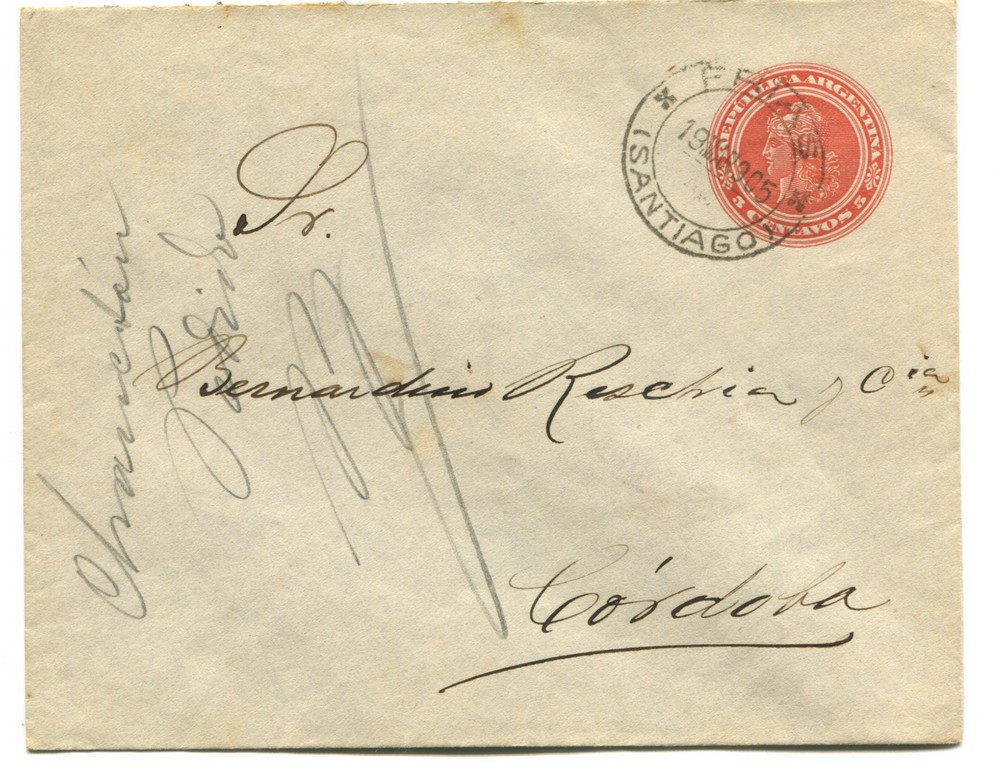 REPUBLICA ARGENTINA
5 CENTAVOS 5
FRIAS
19 1905
(SANTIAGO)
Sr.
Bernardino Reschia y Cia
Córdoba